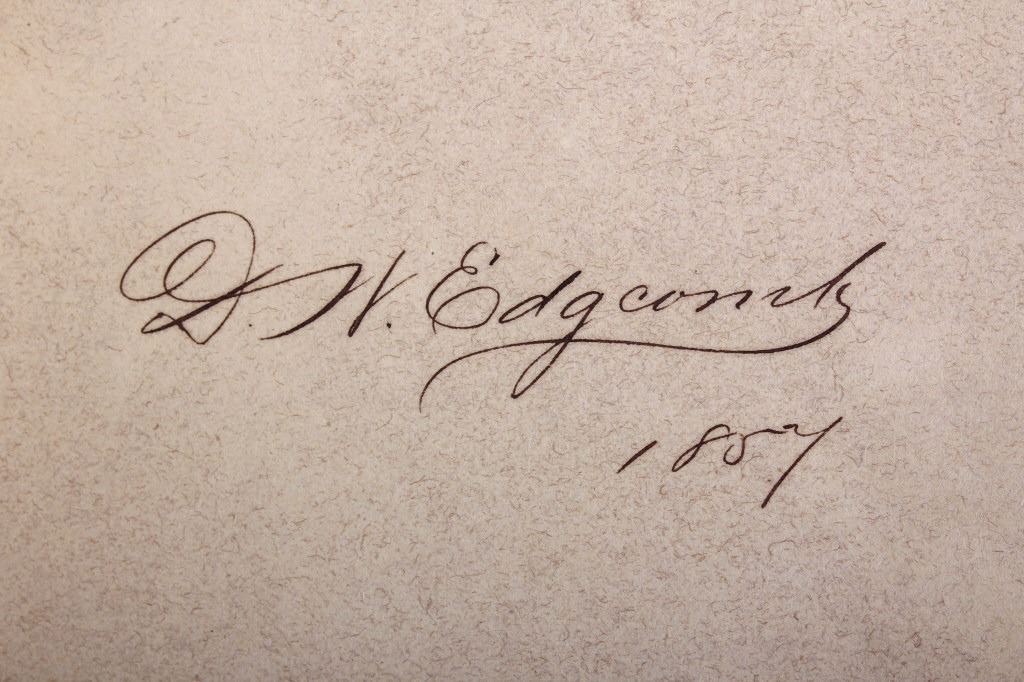 D. W. Edgcomb
1857